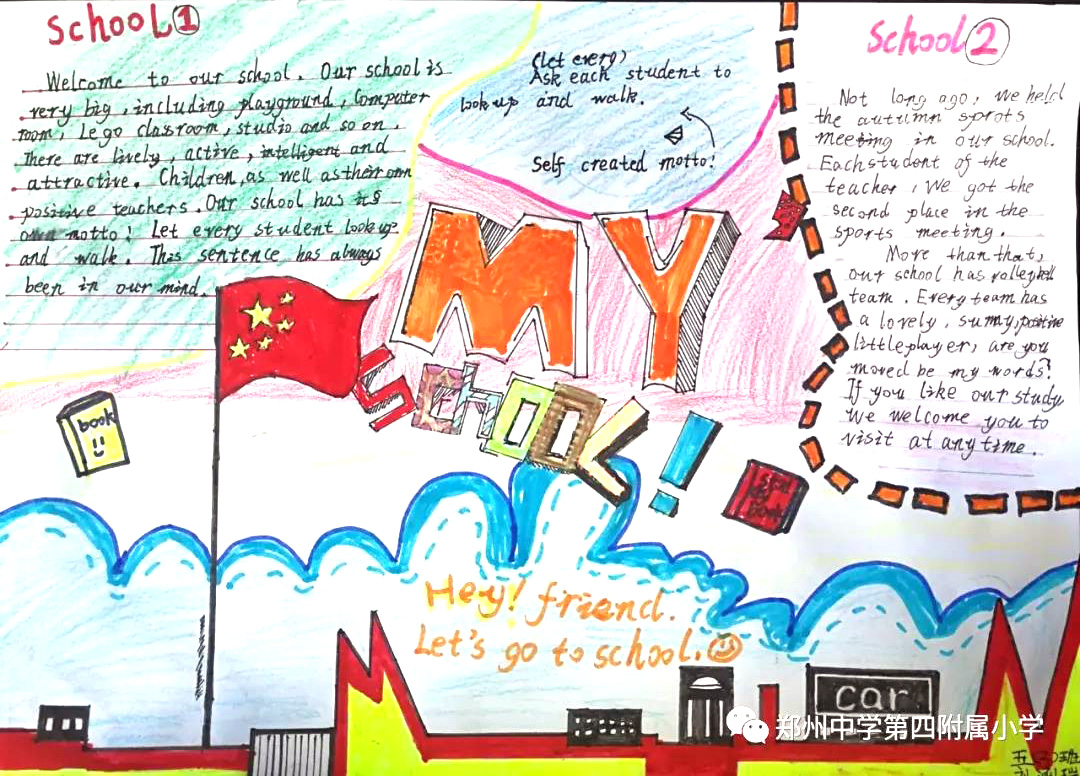 School①
Welcome to our school. Our school is
very big, including playground, Computer
room, Lego classroom, studio and so on.
There are lively, active, intelligent and
attractive. Children, as well as their own
positive teachers. Our school has it's
own motto! Let every student look up
and walk. This sentence has always
been in our mind.
(let every)
Ask each student to
look up and walk.
Self created motto!
School②
Not long ago, We held
the autumn sprots
meeting in our school.
Each student of the
teacher, We got the
second place in the
sports meeting.
More than that,
our school has volleyball
team. Every team has
a lovely, sunny, positive
little player, are you
moved be my words?
If you like our study
We welcome you to
visit at any time.
MY
SCHOOL!
book
book
Hey! friend.
Let's go to school.
car
郑州中学第四附属小学
班